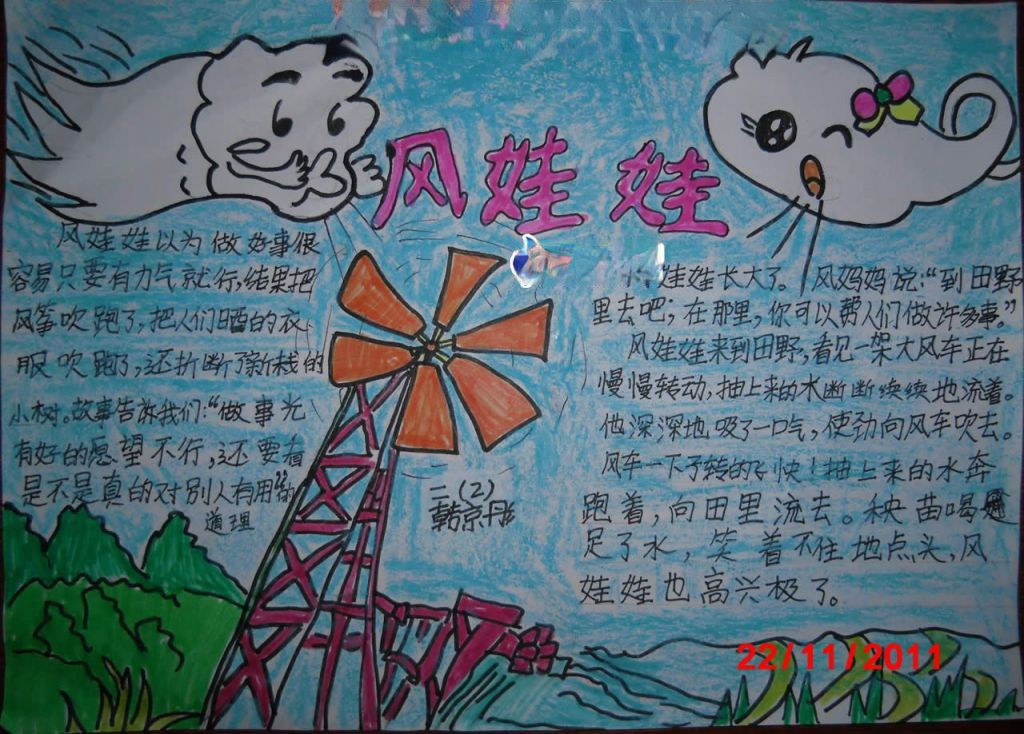 风娃娃
风娃娃以为做好事很
容易只要有力气就行,结果把
风筝吹跑了,把人们晒的衣
服吹跑了,还折断了新栽的
小树。故事告诉我们:“做事光
有好的愿望不行,还要看
是不是真的对别人有用”的
道理
二(2)
韩京丹
娃娃长大了。风妈妈说:“到田野
里去吧,在那里,你可以帮人们做许多事。”
风娃娃来到田野,看见一架大风车正在
慢慢转动,抽上来的水断断续续地流着。
他深深地吸了一口气,使劲向风车吹去。
风车一下子转的飞快!抽上来的水奔
跑着,向田里流去。秧苗喝
足了水,笑着不住地点头,风
娃娃也高兴极了。
22/11/2011